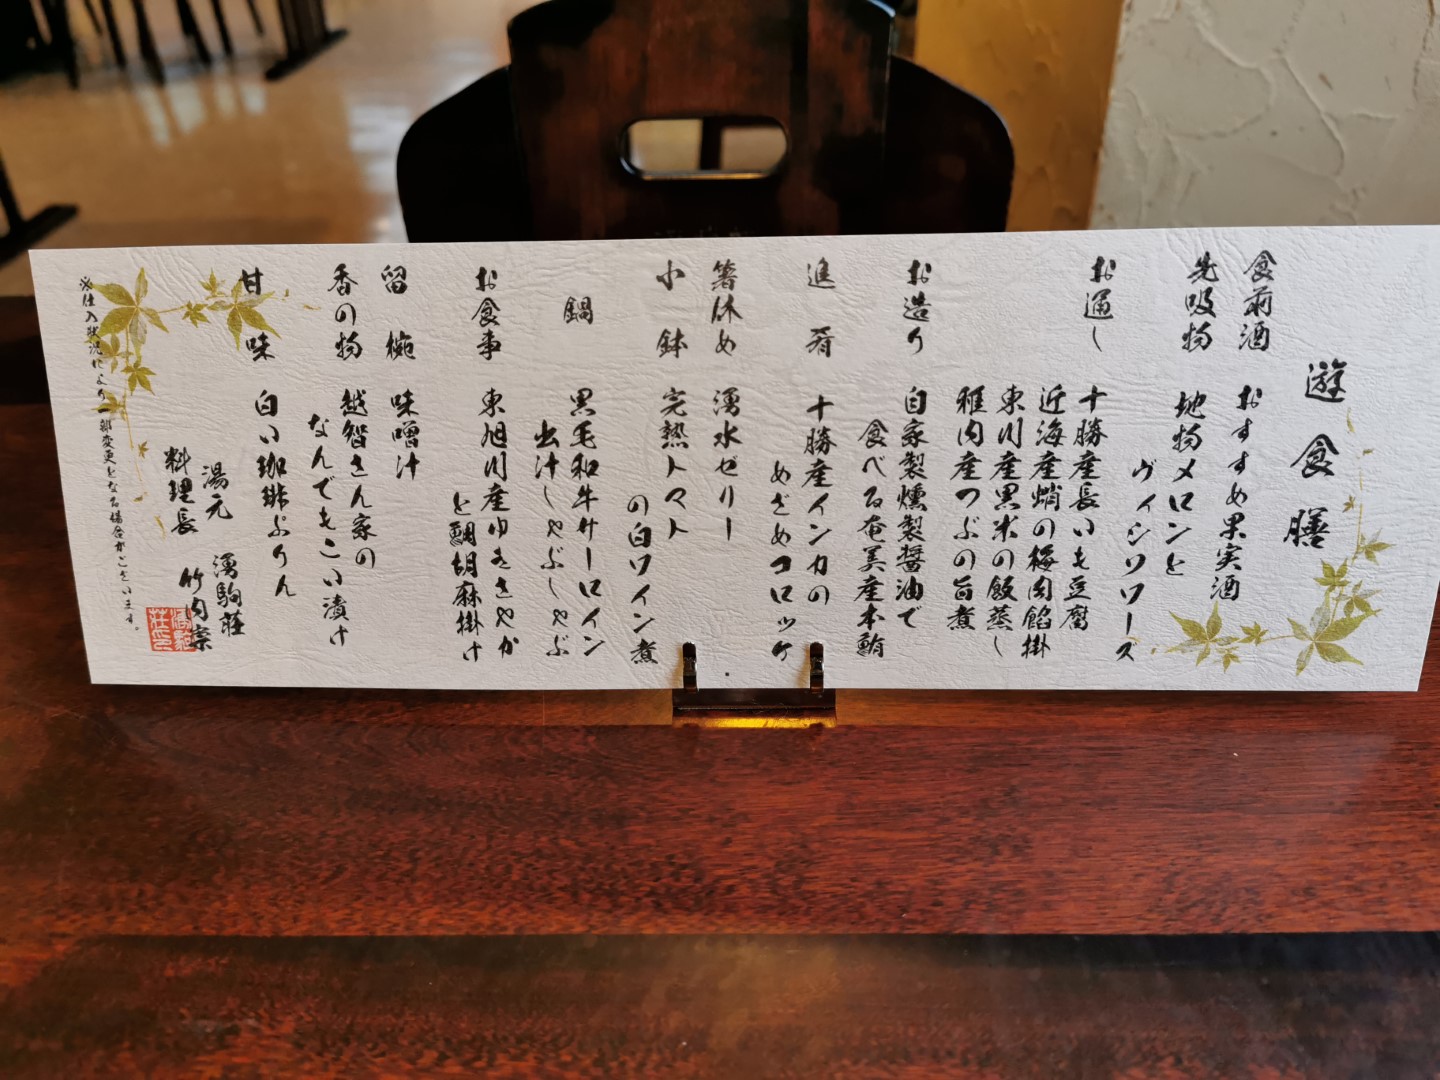 遊食膳
食前酒 おすすめ果実酒
先吸物 地物メロンと
ヴィシソワーズ
お通し 十勝産長いも豆腐
近海産蛸の梅肉餡掛
東川産黒米の飯蒸し
稚内産つぶの旨煮
お造り 自家製燻製醤油で
食べる奄美産本鮪
進肴 十勝産インカの
めざめコロッケ
箸休め 湧水ゼリー
小鉢 完熟トマト
の白ワイン煮
鍋 黒毛和牛サーロイン
出汁しゃぶしゃぶ
お食事 東旭川産ゆきさやか
と鯛胡麻掛け
留椀 味噌汁
香の物 越智さん家の
なんでもこい漬け
甘味 白い珈琲ぷりん
湯元 湧駒荘
料理長 竹内宗
※仕入状況により一部変更となる場合がございます。